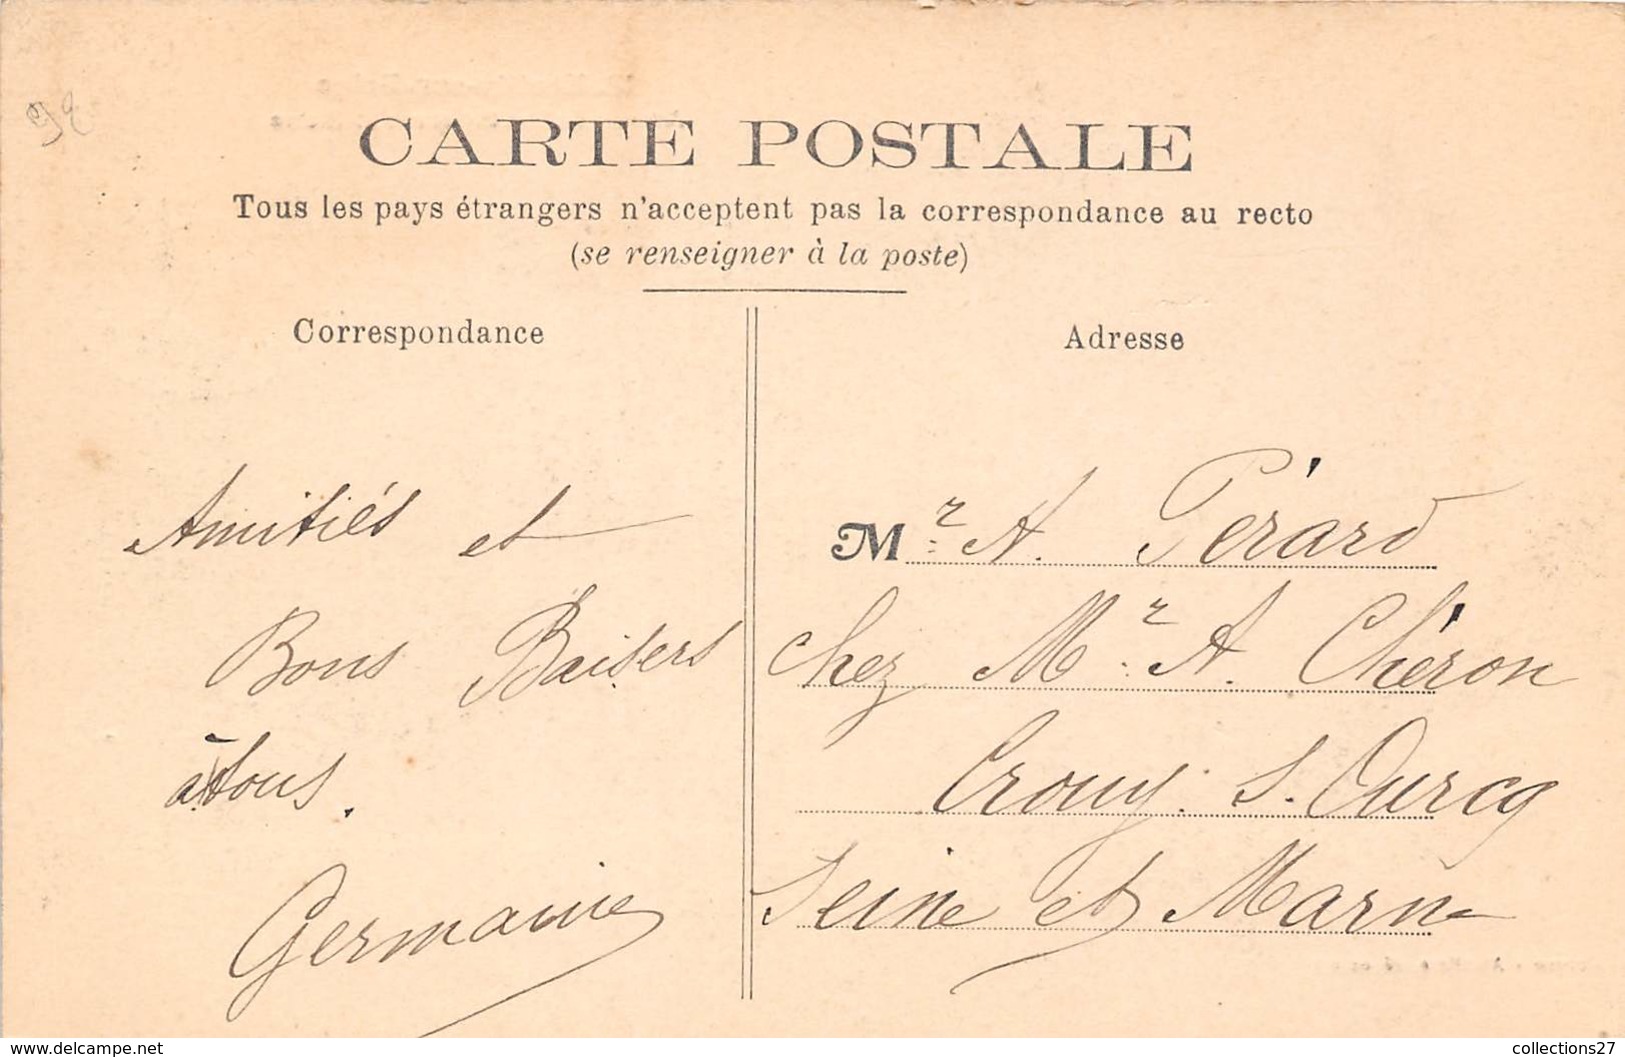 92
CARTE POSTALE
Tous les pays étrangers n'acceptent pas la correspondance au recto
(se renseigner à la poste)
Correspondance
Amitiés et
Bons Baisers
à tous.
Germaine
Adresse
Mr A. Pérard
chez Mr A. Chéron
Crouy. s. Ourcq
Seine et Marne
www.delcampe.net
collections27